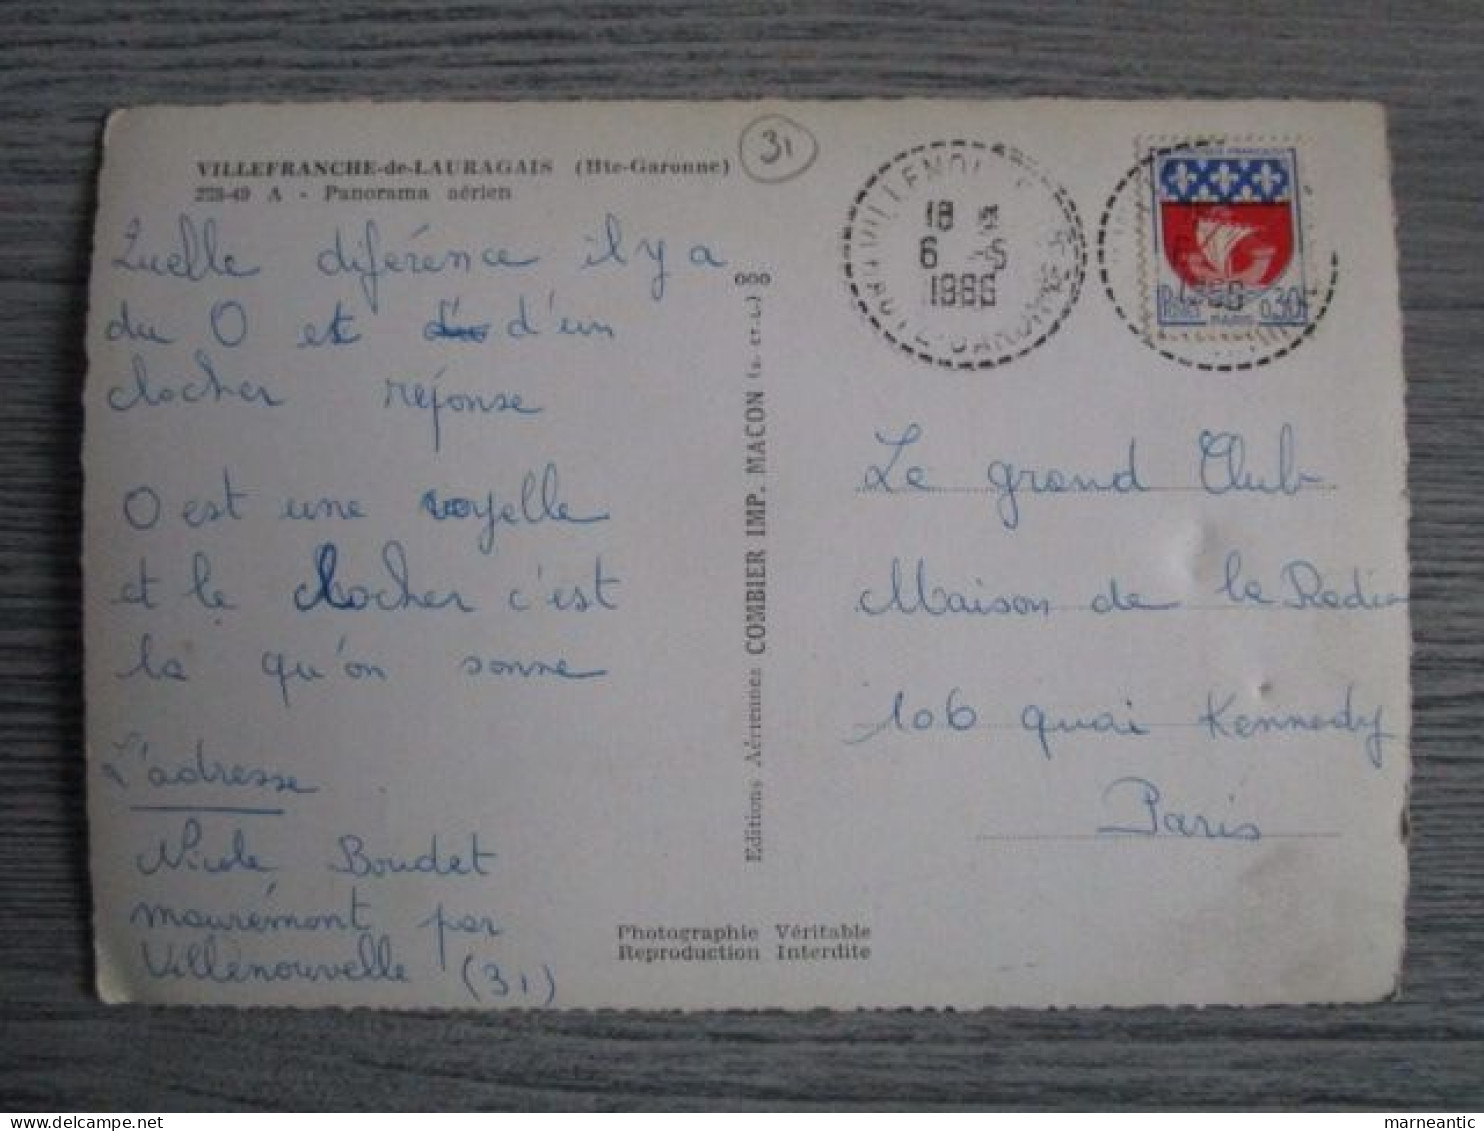 VILLEFRANCHE-de-LAURAGAIS (Hte-Garonne)
228-49 A - Panorama aérien
31
Quelle diférence il y a
du O et d'un
clocher réponse
O est une voyelle
et le clocher c'est
la qu'on sonne
L'adresse
Nicole Boudet
maurémont par
Villenouvelle (31)
ooo
Editions Aériennes COMBIER IMP. MACON (S.-et-L.)
Photographie Véritable
Reproduction Interdite
VILLENOUVELLE
18 H
6 -5
1966
HAUTE-GARONNE
Postes 0,30
PARIS
Le grand Club
Maison de la Radio
106 quai Kennedy
Paris
marneantic